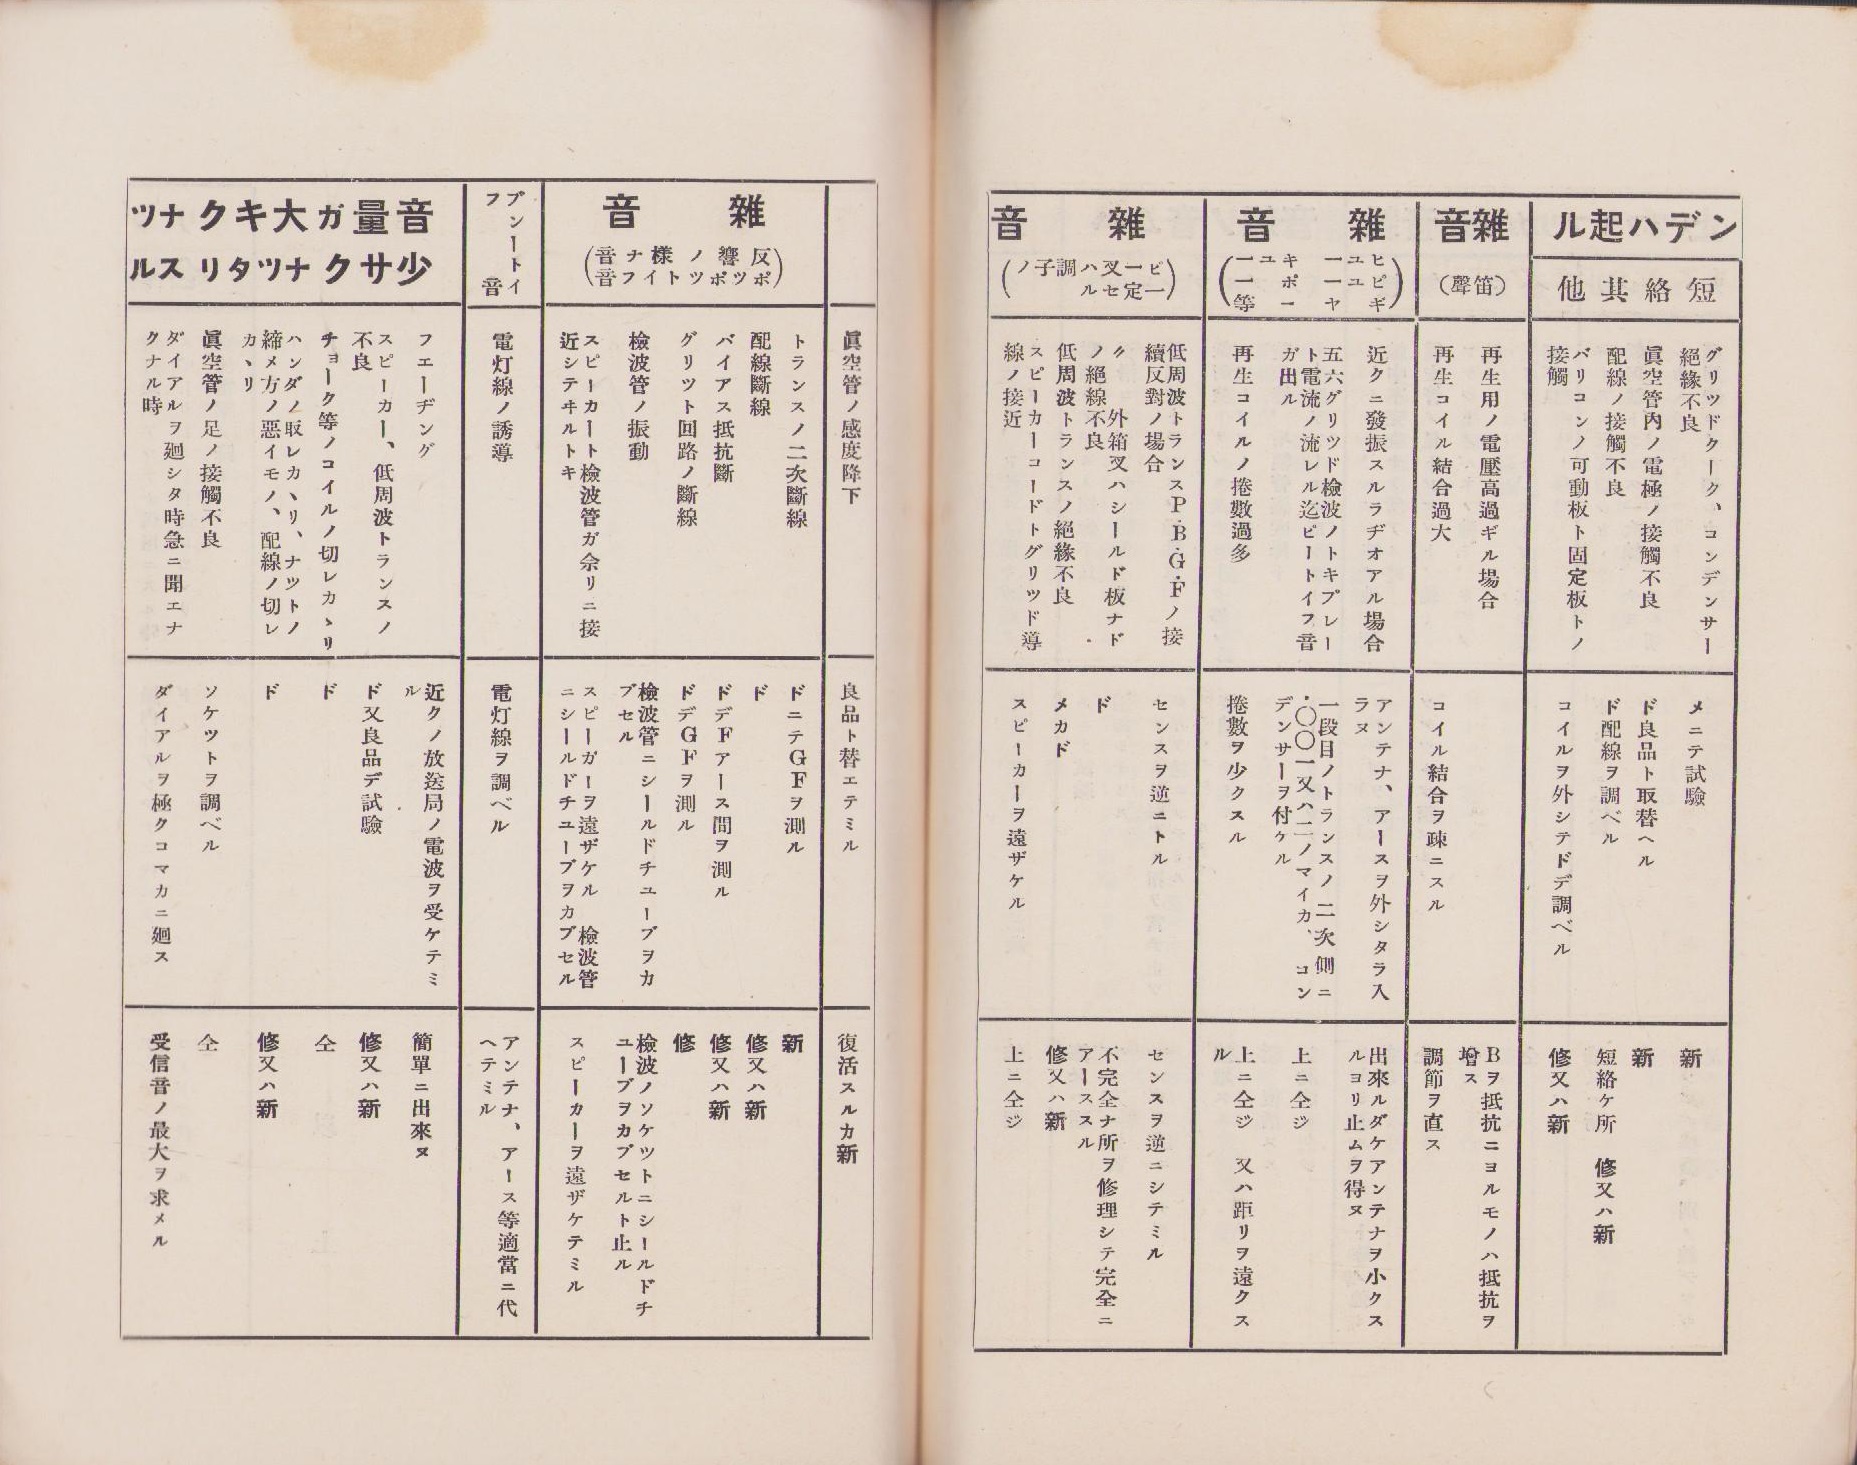 ンデハ起ル
短絡其他
グリツドクーク、コンデンサー
絕緣不良
眞空管內ノ電極ノ接觸不良
配線ノ接觸不良
バリコンノ可動板ト固定板トノ
接觸
メニテ試驗
ド良品ト取替ヘル
ド配線ヲ調ベル
コイルヲ外シテドデ調ベル
新
新
短絡ケ所 修又ハ新
修又ハ新
雜音
(笛聲)
再生用ノ電壓高過ギル場合
再生コイル結合過大
コイル結合ヲ疎ニスル
Bヲ抵抗ニヨルモノハ抵抗ヲ
增ス
調節ヲ直ス
雜音
近クニ發振スルラヂオアル場合
五六グリツド檢波ノトキプレー
ト電流ノ流レル迄ビートイフ音
ガ出ル
再生コイルノ捲數過多
アンテナ、アースヲ外シタラ入
ラヌ
一段目ノトランスノ二次側ニ
・〇〇一又ハ二ノマイカ、コン
デンサーヲ付ケル
捲數ヲ少クスル
出來ルダケアンテナヲ小クス
ルヨリ止ムヲ得ヌ
上ニ仝ジ
上ニ仝ジ 又ハ距リヲ遠クス
ル
雜音
(ビー又ハ調子ノ
一定セル)
低周波トランスP.B.G.Fノ接
續反對ノ場合
〃 外箱又ハシールド板ナド
ノ絕線不良
低周波トランスノ絕緣不良
スピーカーコードトグリツド導
線ノ接近
センスヲ逆ニトル
ド
メカド
スピーカーヲ遠ザケル
センスヲ逆ニシテミル
不完全ナ所ヲ修理シテ完全ニ
アーススル
修又ハ新
上ニ仝ジ
眞空管ノ感度降下
良品ト替エテミル
復活スルカ新
雜音
(反響ノ樣ナ音
ポツポツトイフ音)
トランスノ二次斷線
配線斷線
バイアス抵抗斷
グリツト回路ノ斷線
檢波管ノ振動
スピーカート檢波管ガ余リニ接
近シテヰルトキ
ドニテGFヲ測ル
ド
ドデFアース間ヲ測ル
ドデGFヲ測ル
檢波管ニシールドチユーブヲカ
ブセル
スピーガーヲ遠ザケル 檢波管
ニシールドチユーブヲカブセル
新
修又ハ新
修又ハ新
修
檢波ノソケツトニシールドチ
ユーブヲカブセルト止ル
スピーカーヲ遠ザケテミル
ブンートイ
フ音
電灯線ノ誘導
電灯線ヲ調ベル
アンテナ、アース等適當ニ代
ヘテミル
音量ガ大キクナツ
少サクナツタリスル
フエーヂング
スピーカー、低周波トランスノ
不良
チョーク等ノコイルノ切レカヽリ
ハンダノ取レカヽリ、ナツトノ
締メ方ノ惡イモノ、配線ノ切レ
カヽリ
眞空管ノ足ノ接觸不良
ダイアルヲ廻シタ時急ニ聞エナ
クナル時
近クノ放送局ノ電波ヲ受ケテミ
ル
ド又良品デ試驗
ド
ド
ソケツトヲ調ベル
ダイアルヲ極クコマカニ廻ス
簡單ニ出來ヌ
修又ハ新
仝
修又ハ新
仝
受信音ノ最大ヲ求メル